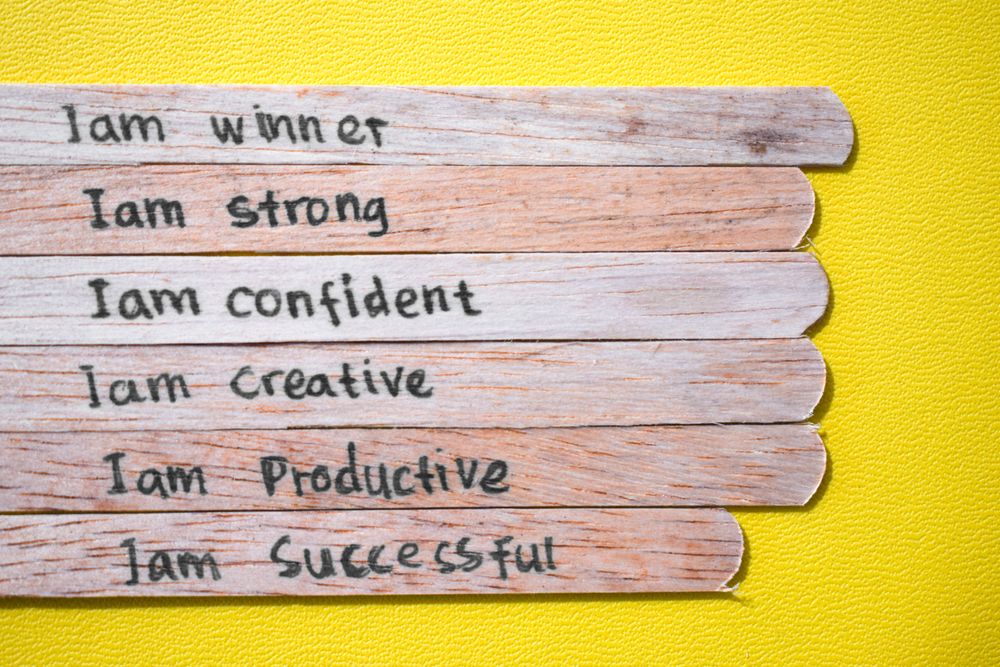 I am winner
I am strong
I am confident
I am creative
I am Productive
I am Successful